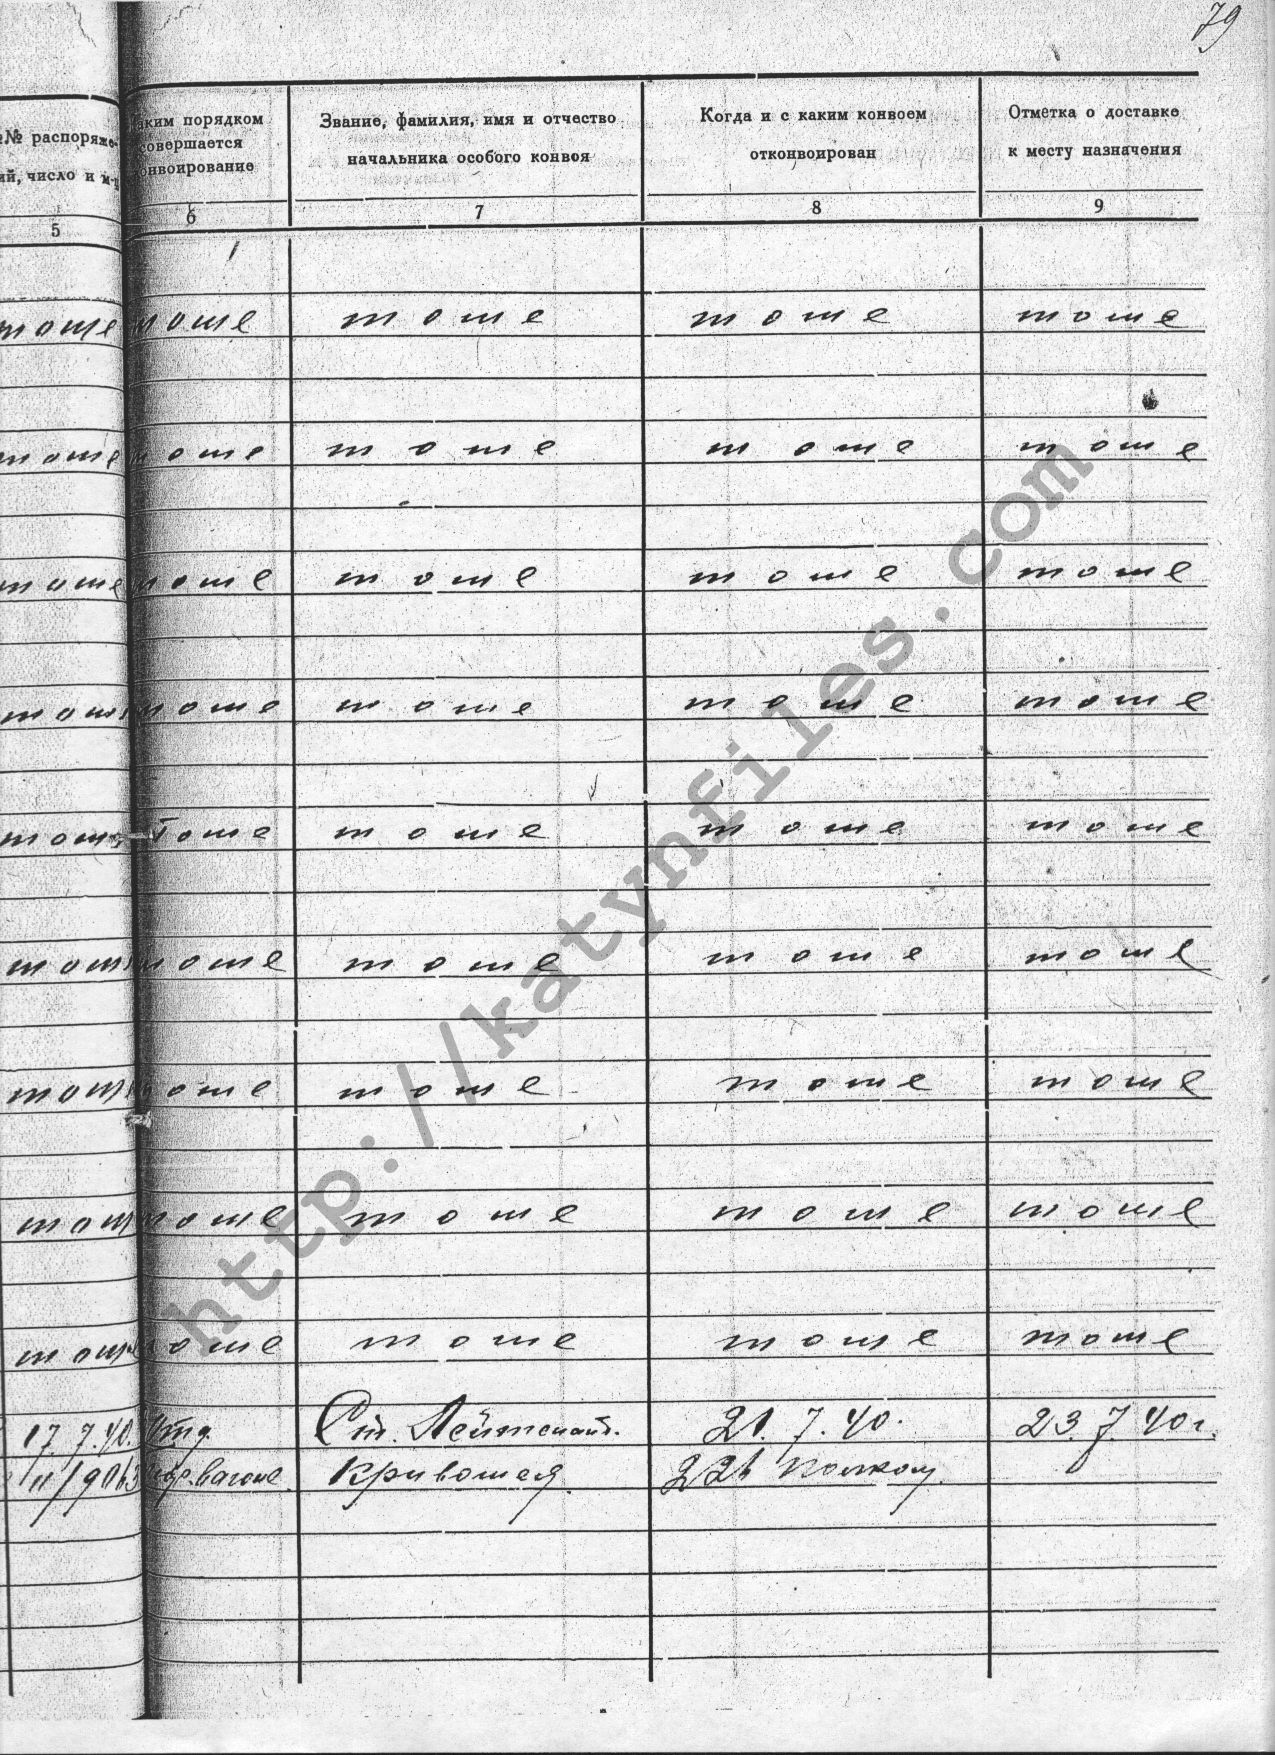 79
№№ распоряже- Каким порядком Звание, фамилия, имя и отчество Когда и с каким конвоем Отметка о доставке
ий, число и м-ц совершается начальника особого конвоя отконвоирован к месту назначения
конвоирование
5 6 7 8 9
тоже тоже тоже тоже тоже
тоже тоже тоже тоже тоже
тоже тоже тоже тоже тоже
тоже тоже тоже тоже тоже
тоже тоже тоже тоже тоже
тоже тоже тоже тоже тоже
тоже тоже тоже тоже тоже
тоже тоже тоже тоже тоже
тоже тоже тоже тоже тоже
17.7.40. Ст. Лейтенант. 21.7.40. 23.7.40г.
11/9063 вагоне. Кривошея. 221 полком.
http://katynfiles.com